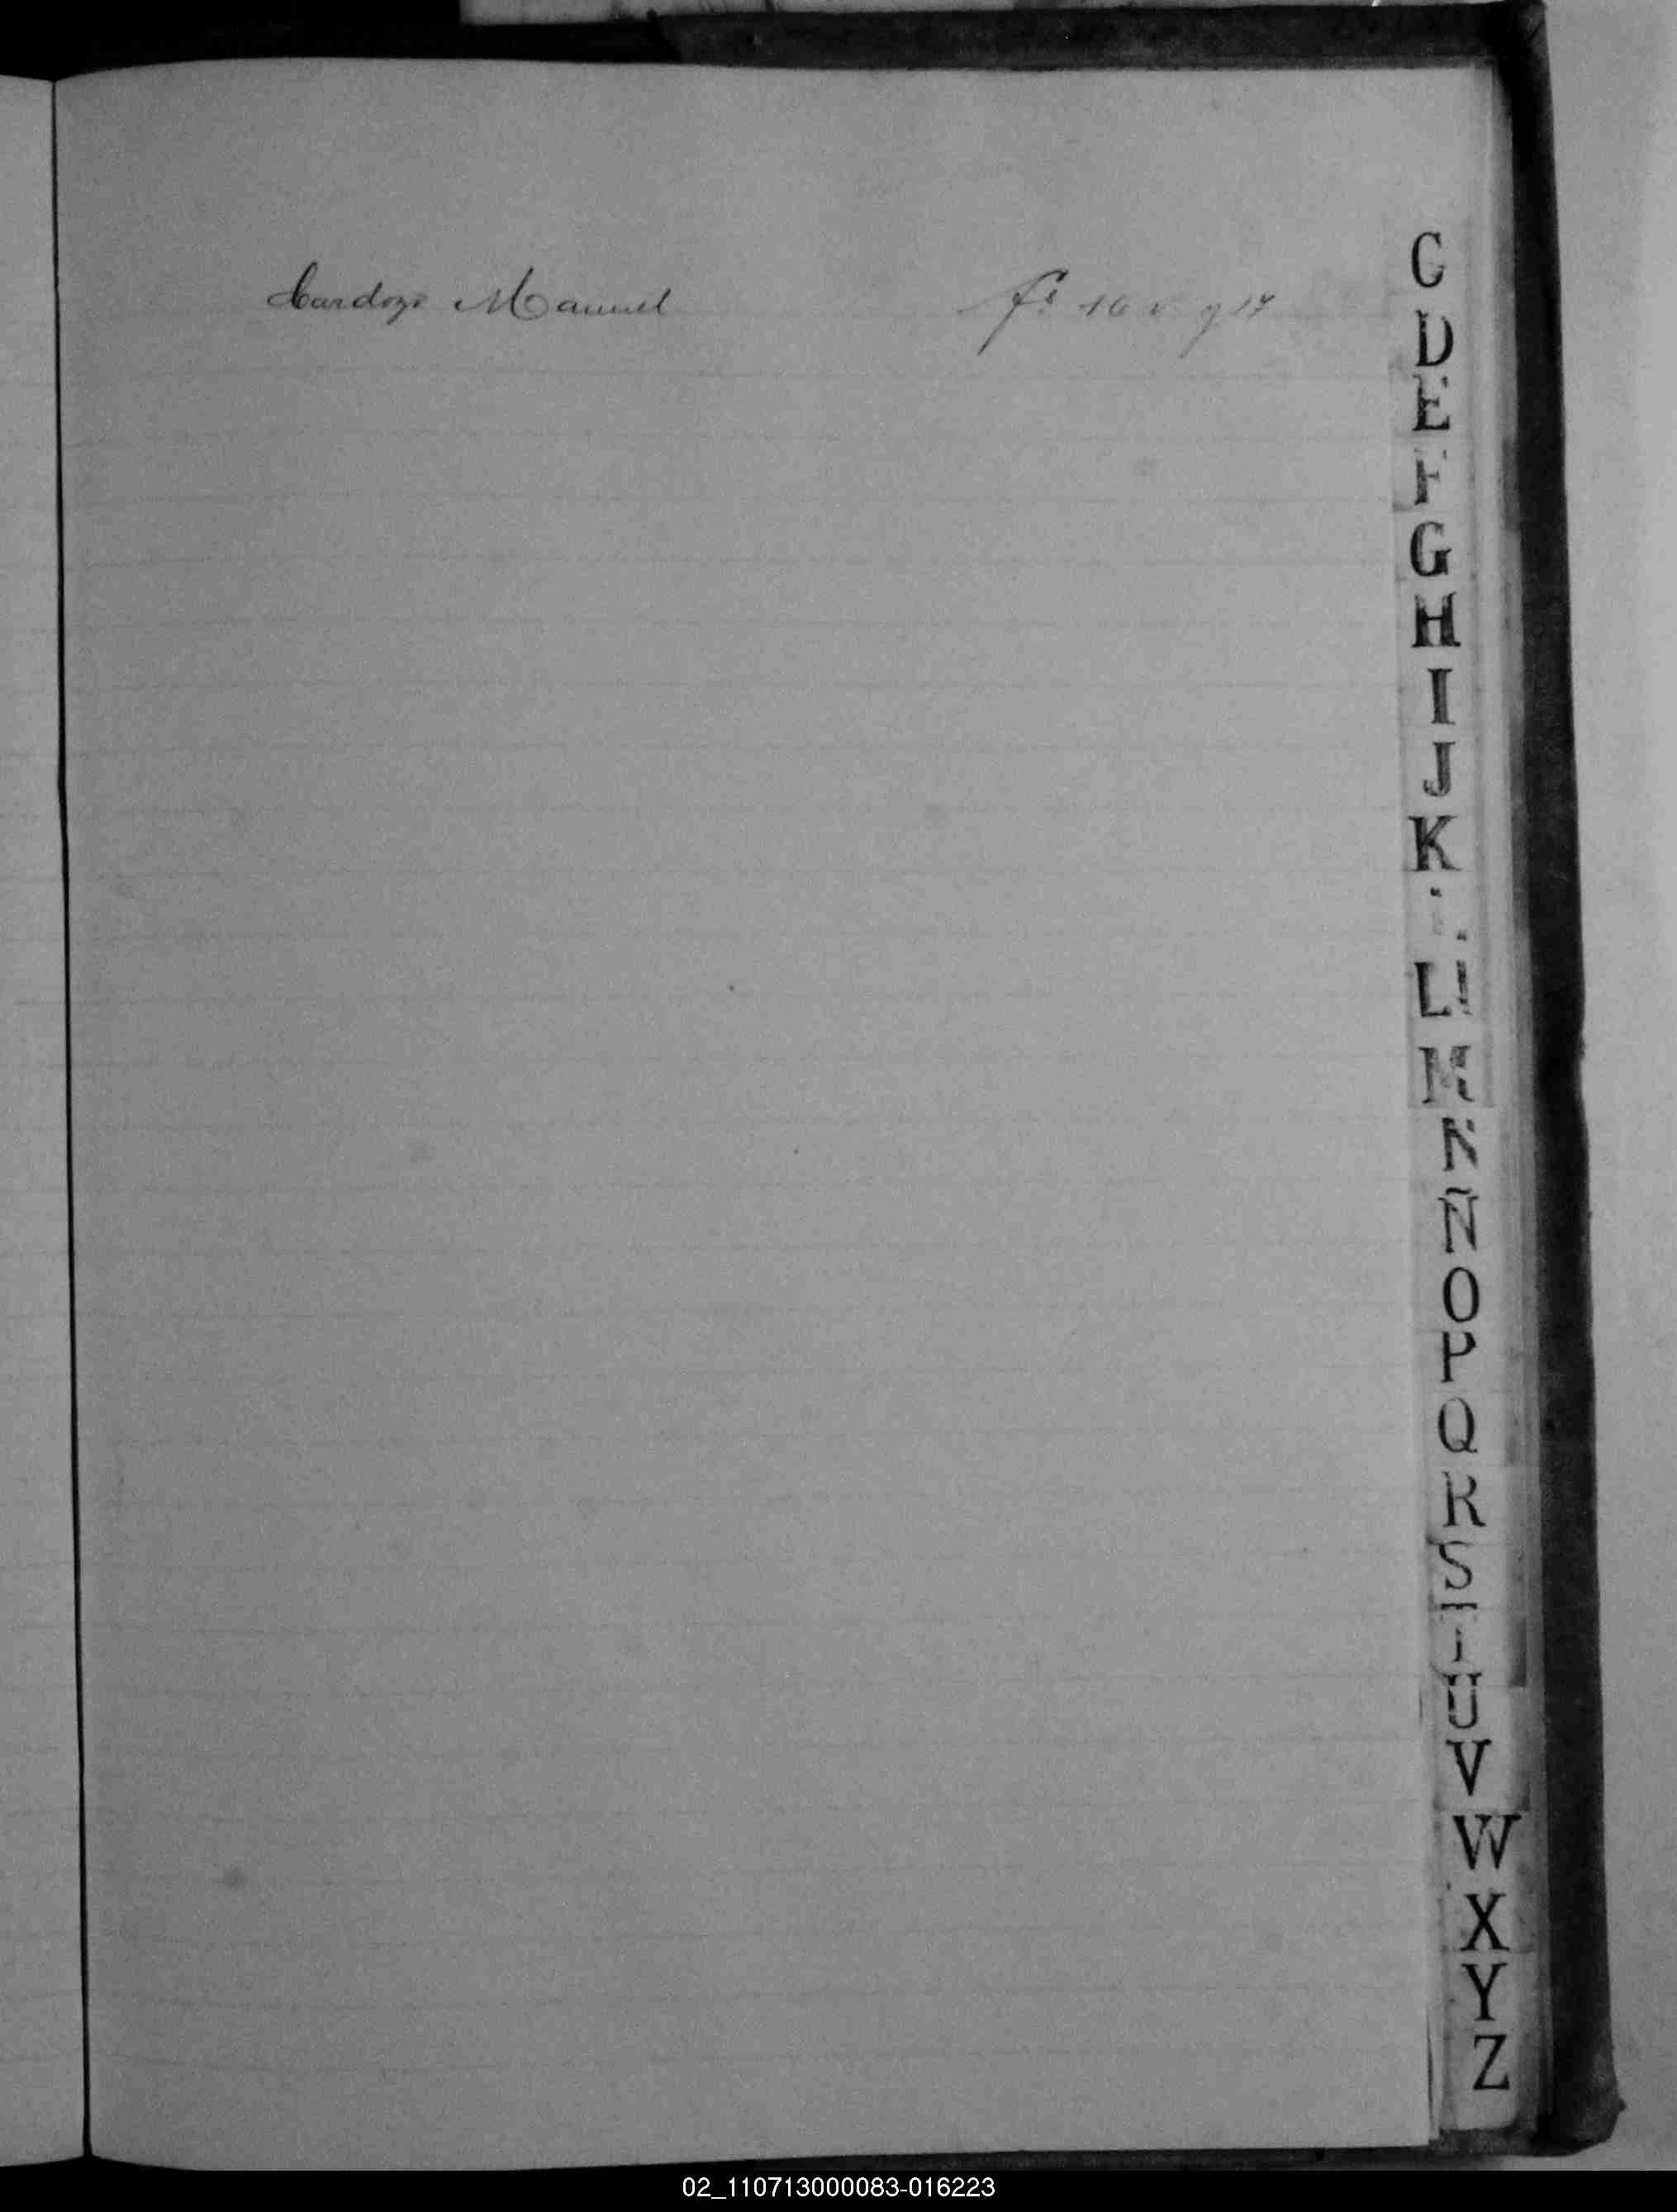 Cardozo Manuel fs 16 v y 17
C
D
E
F
G
H
I
J
K
L
LL
M
N
Ñ
O
P
Q
R
S
T
U
V
W
X
Y
Z
02_110713000083-016223